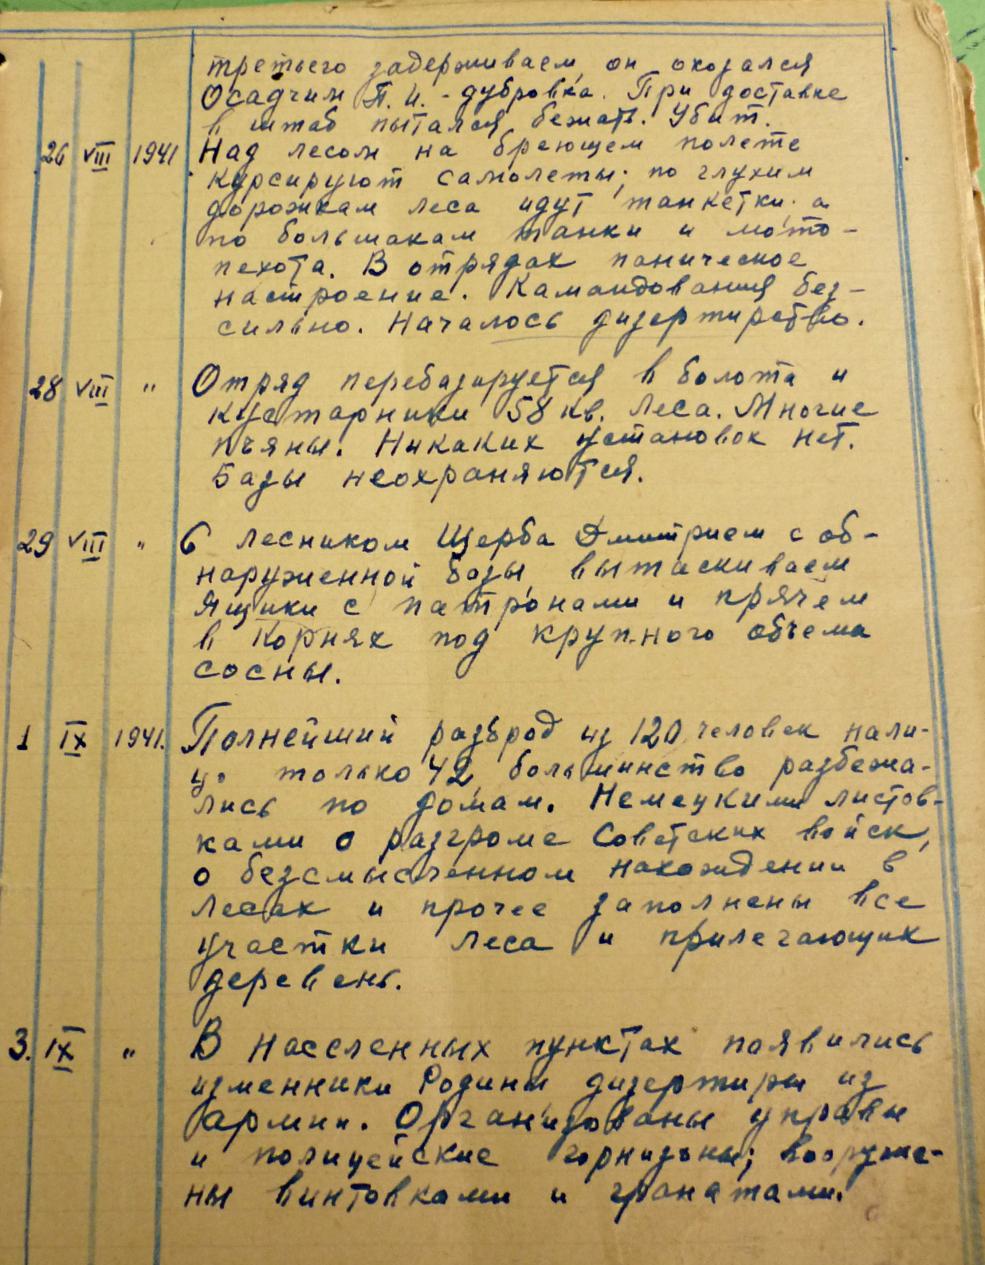 третьего задерживаем, он оказался
Осадчим П.И. - дубровка. При доставке
в штаб пытался бежать. Убит.
26 VIII 1941 Над лесом на бреющем полете
курсируют самолеты; по глухим
дорожкам леса идут танкетки, а
по большакам танки и мото-
пехота. В отрядах паническое
настроение. Камандования без-
сильно. Началось дизертирство.
28 VIII " Отряд перебазируется в болота и
кустарники 58 кв. леса. Многие
пьяны. Никаких установок нет.
Базы неохраняются.
29 VIII " С лесником Щерба Дмитрием с об-
наруженной базы вытаскиваем
ящики с патронами и прячем
в корнях под крупного объема
сосны.
1 IX 1941. Полнейший разброд из 120 человек нали-
цо только 42, большинство разбежа-
лись по домам. Немецкими листов-
ками о разгроме Советских войск,
о безсмысленном нахождении в
лесах и прочее заполнены все
участки леса и прилегающих
деревень.
3. IX " В населенных пунктах появились
изменники Родины дизертиры из
армии. Организованы управы
и полицейские горнизоны; вооруже-
ны винтовками и гранатами.